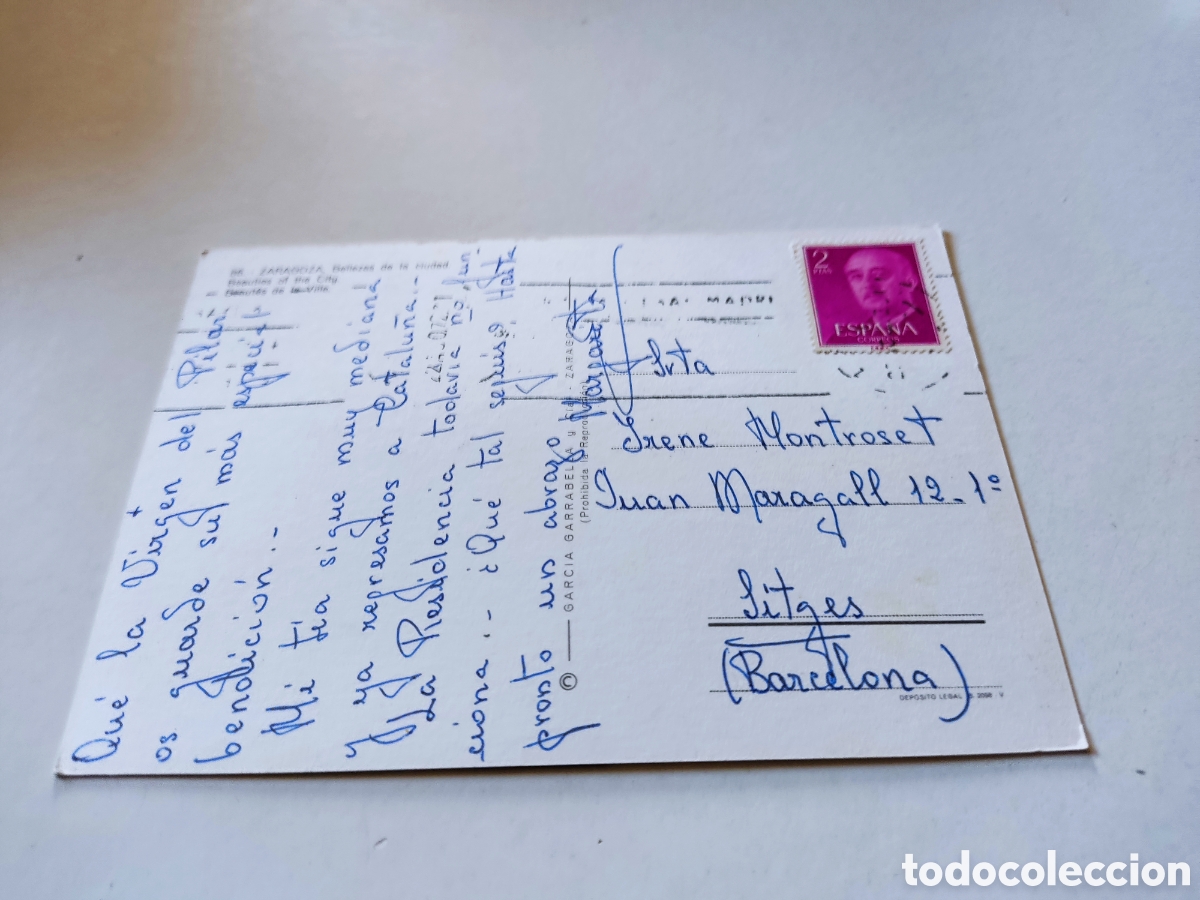 ZARAGOZA. Bellezas de la ciudad
Beauties of the City
Beautés de la Ville
Qué la Virgen del Pilar
os guarde su más
bendición.-
Mi tía sigue muy mediana
y ya regresamos a Cataluña.-
La Residencia todavía no fun-
ciona.- ¿Qué tal seguís? Hasta
pronto un abrazo Margarita
© GARCIA GARRABELLA y
(Prohibida la Reproducción)
2
PTAS
ESPAÑA
CORREOS
Srta
Irene Montroset
Juan Maragall 12-1º
Sitges
(Barcelona)
DEPOSITO LEGAL
todocoleccion